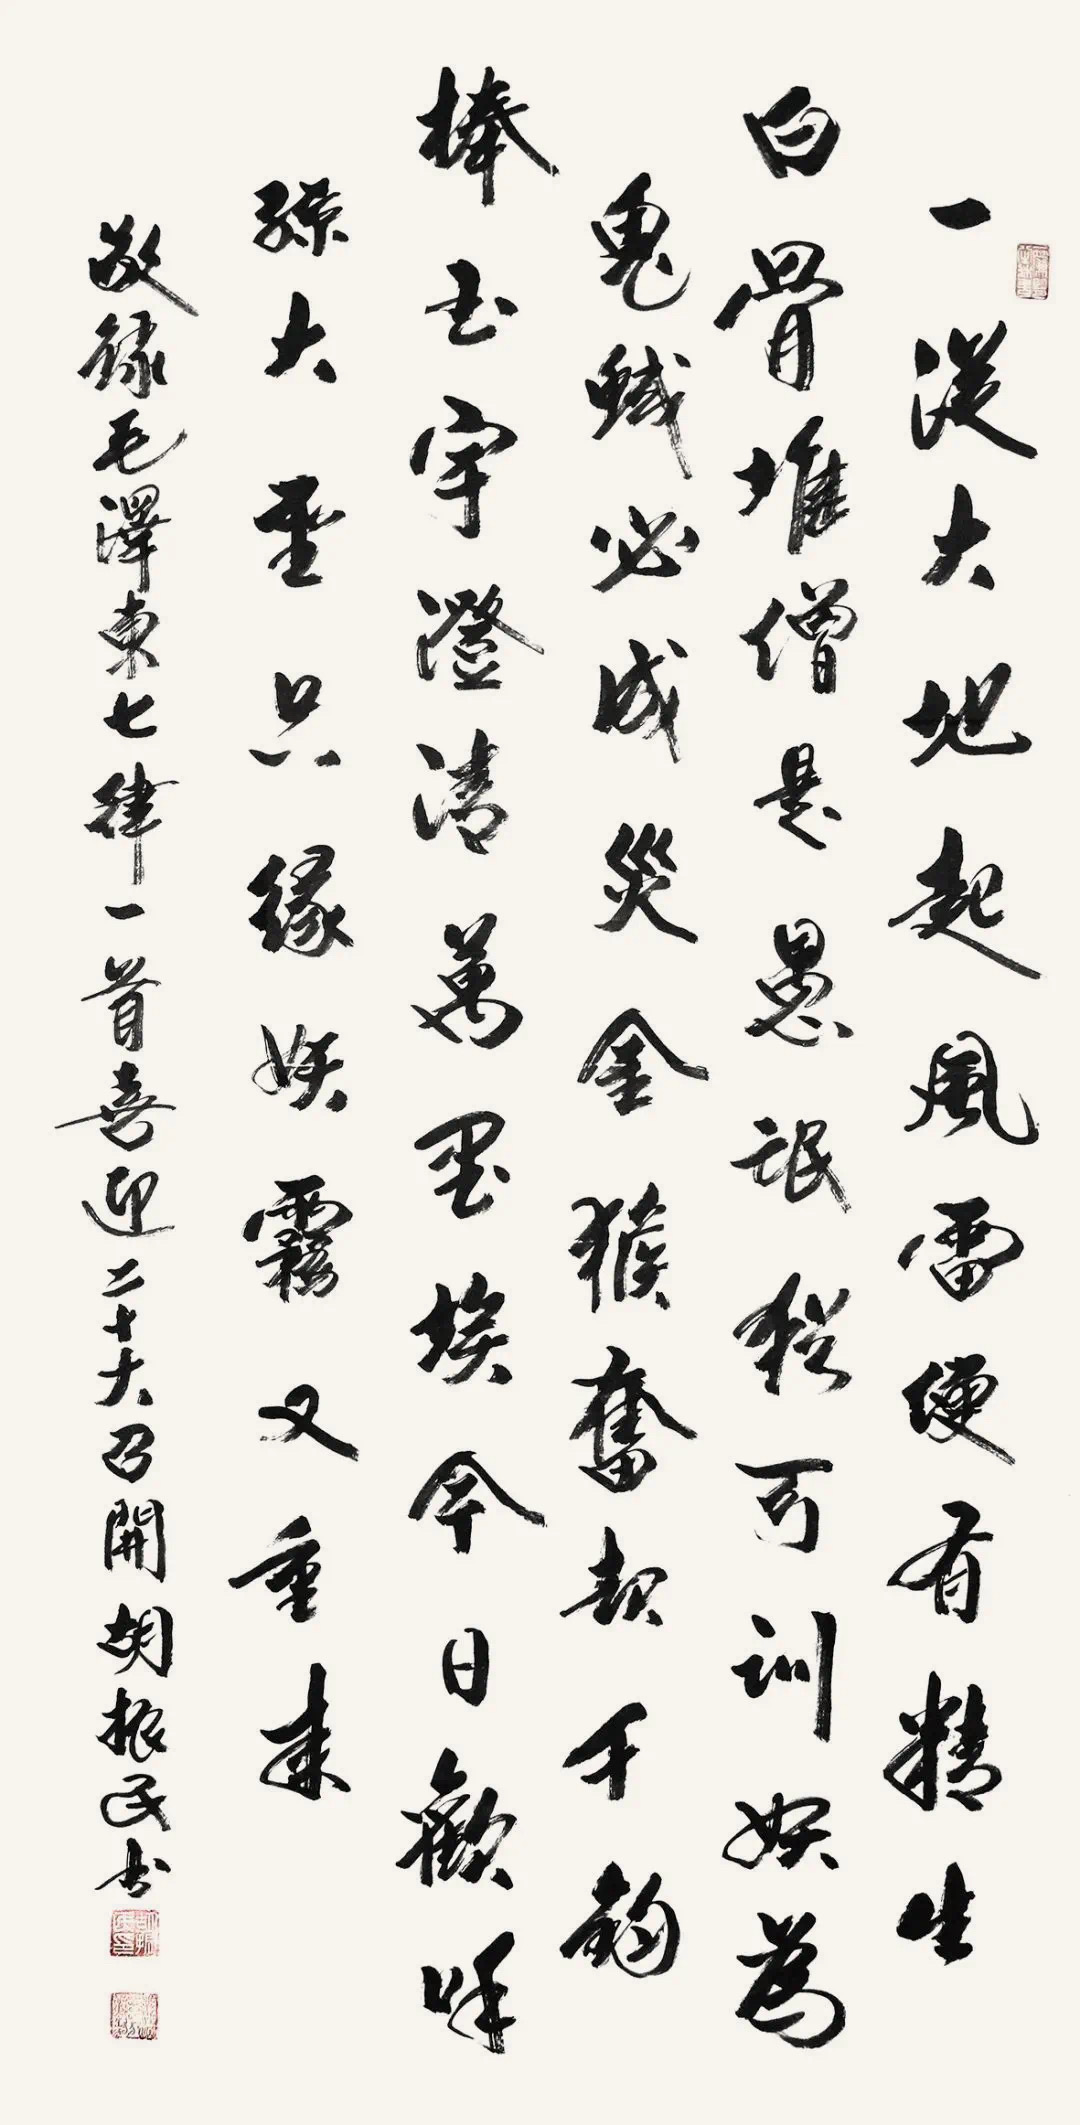 一從大地起風雷便有精生
白骨堆僧是愚氓猶可訓妖為
鬼蜮必成災金猴奮起千鈞
棒玉宇澄清萬里埃今日歡呼
孫大聖只緣妖霧又重來
敬録毛澤東七律一首喜迎二十大召開胡振民书